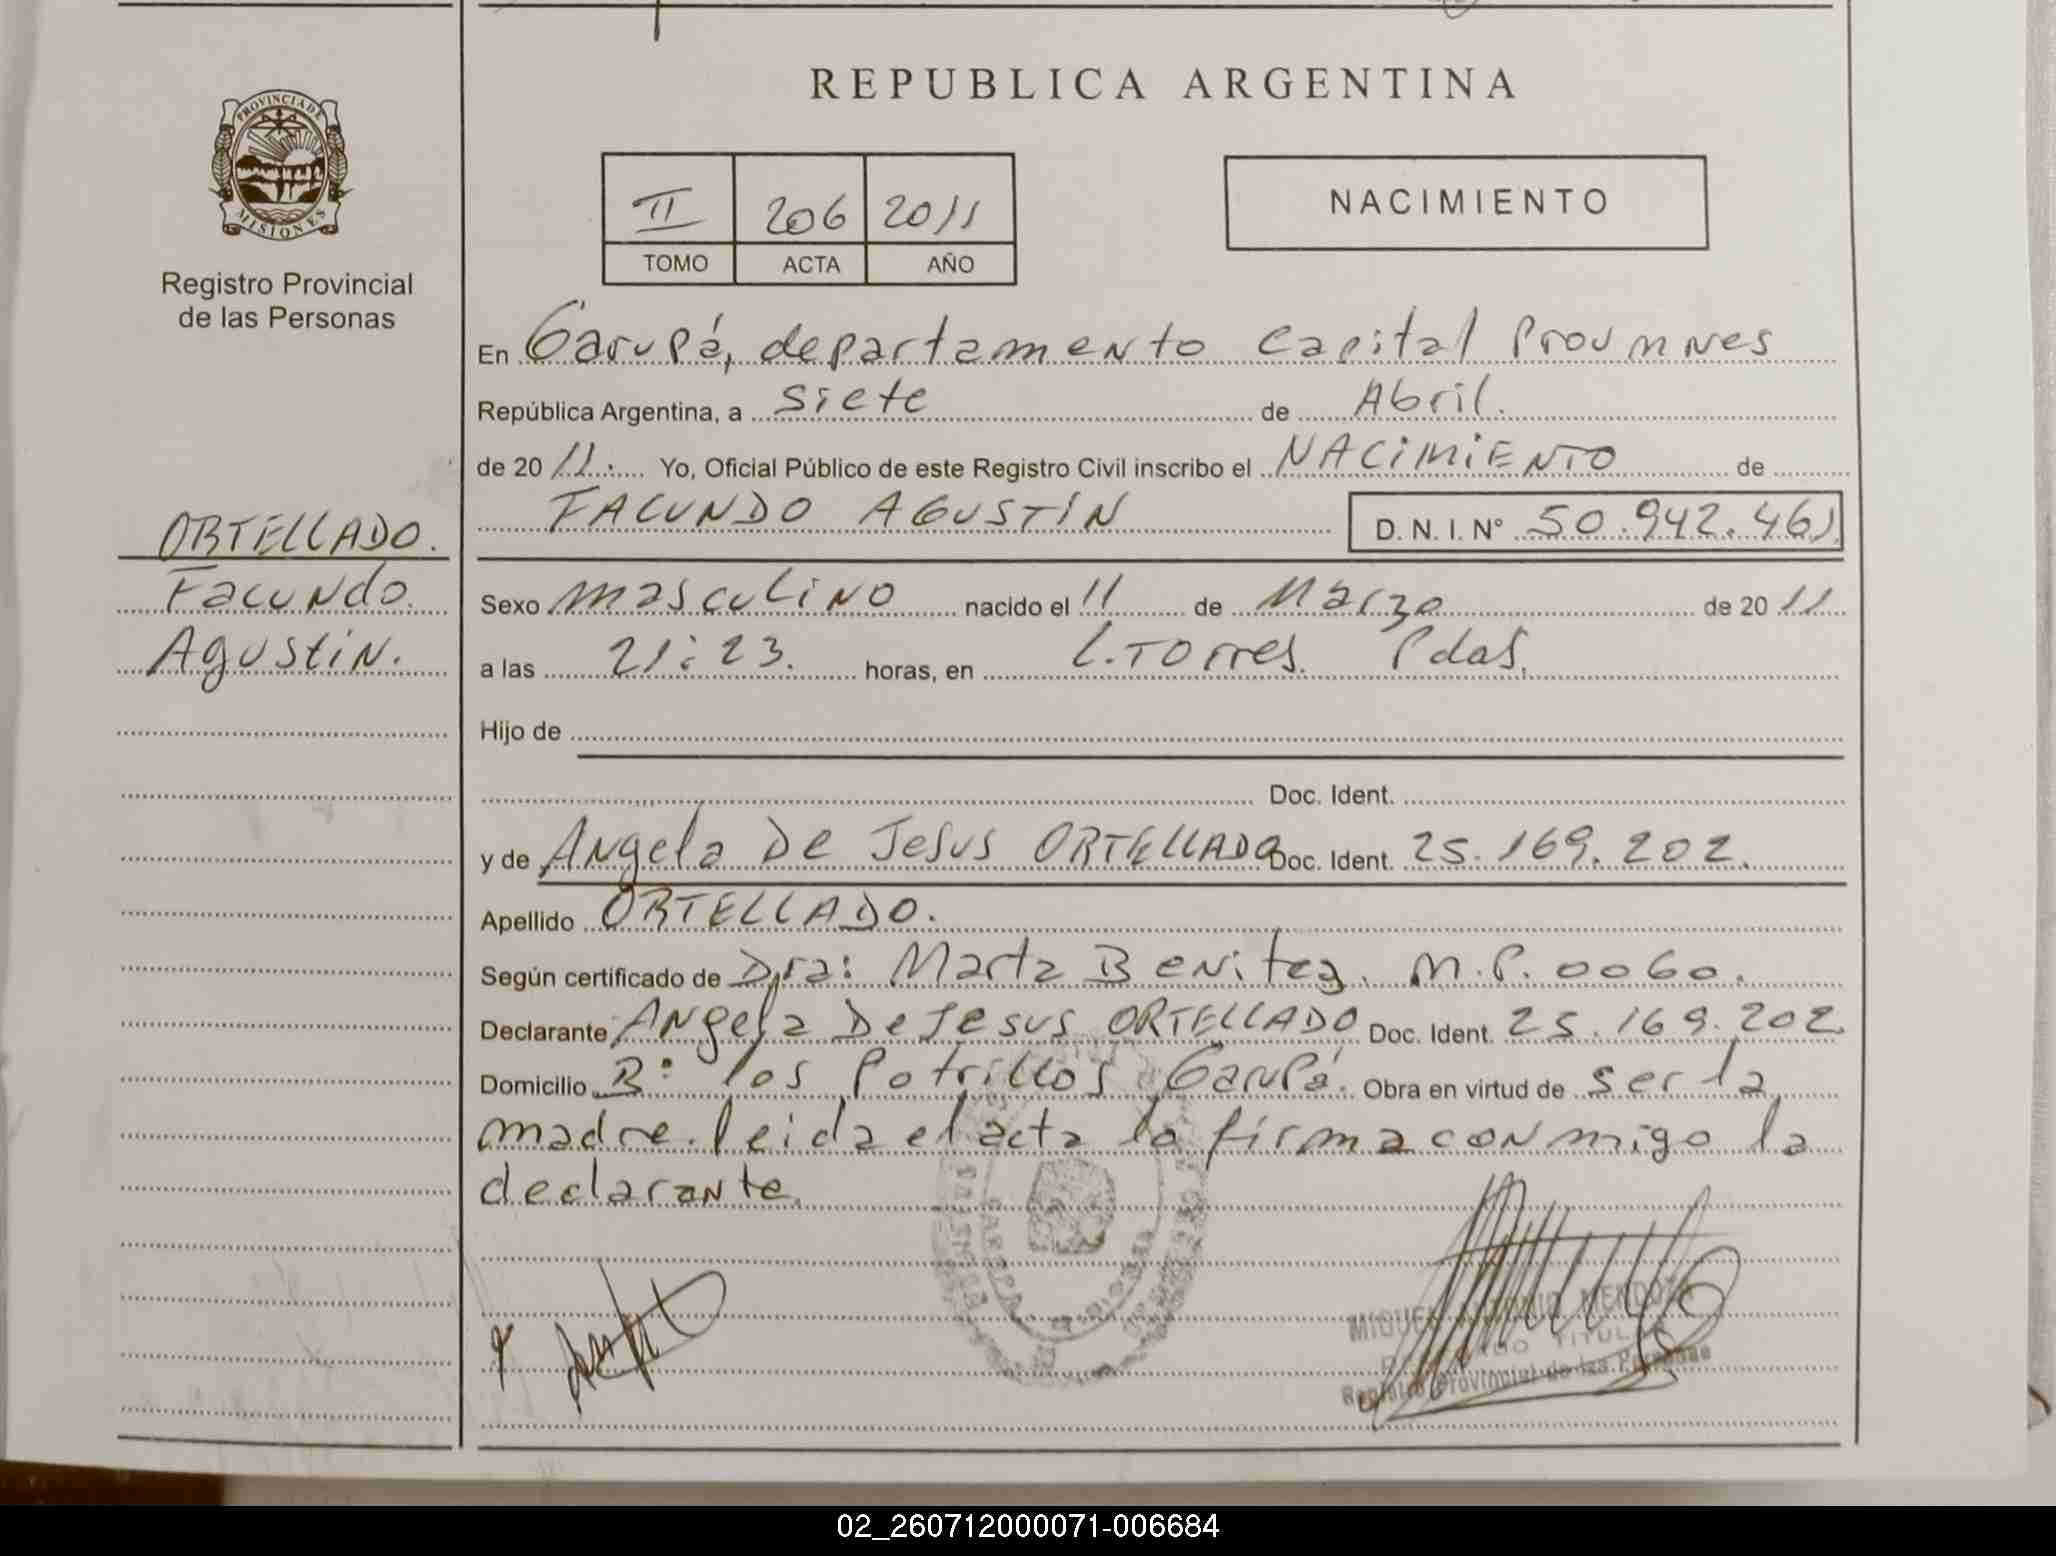 REPUBLICA ARGENTINA
PROVINCIA DE
MISIONES
Registro Provincial
de las Personas
II 206 2011
TOMO ACTA AÑO
NACIMIENTO
En Garupá, departamento Capital Prov Mnes
República Argentina, a siete de Abril.
de 20 11. Yo, Oficial Público de este Registro Civil inscribo el NACIMIENTO de
FACUNDO AGUSTIN D. N. I. N° 50.942.461
ORTELLADO.
Facundo.
Agustin.
Sexo masculino nacido el 11 de Marzo de 20 11
a las 21:23. horas, en L. Torres. Pdas.
Hijo de
Doc. Ident.
y de Angela De Jesus ORTELLADO Doc. Ident. 25.169.202.
Apellido ORTELLADO.
Según certificado de Dra: Marta Benitez. M.P. 0060.
Declarante Angela De Jesus ORTELLADO Doc. Ident. 25.169.202
Domicilio B: los Potrillos Garupá. Obra en virtud de ser la
madre. leida el acta la firma conmigo la
declarante.
MIGUEL ANTONIO MENDOZA
TITULAR
Registro Provincial de las Personas
02_260712000071-006684